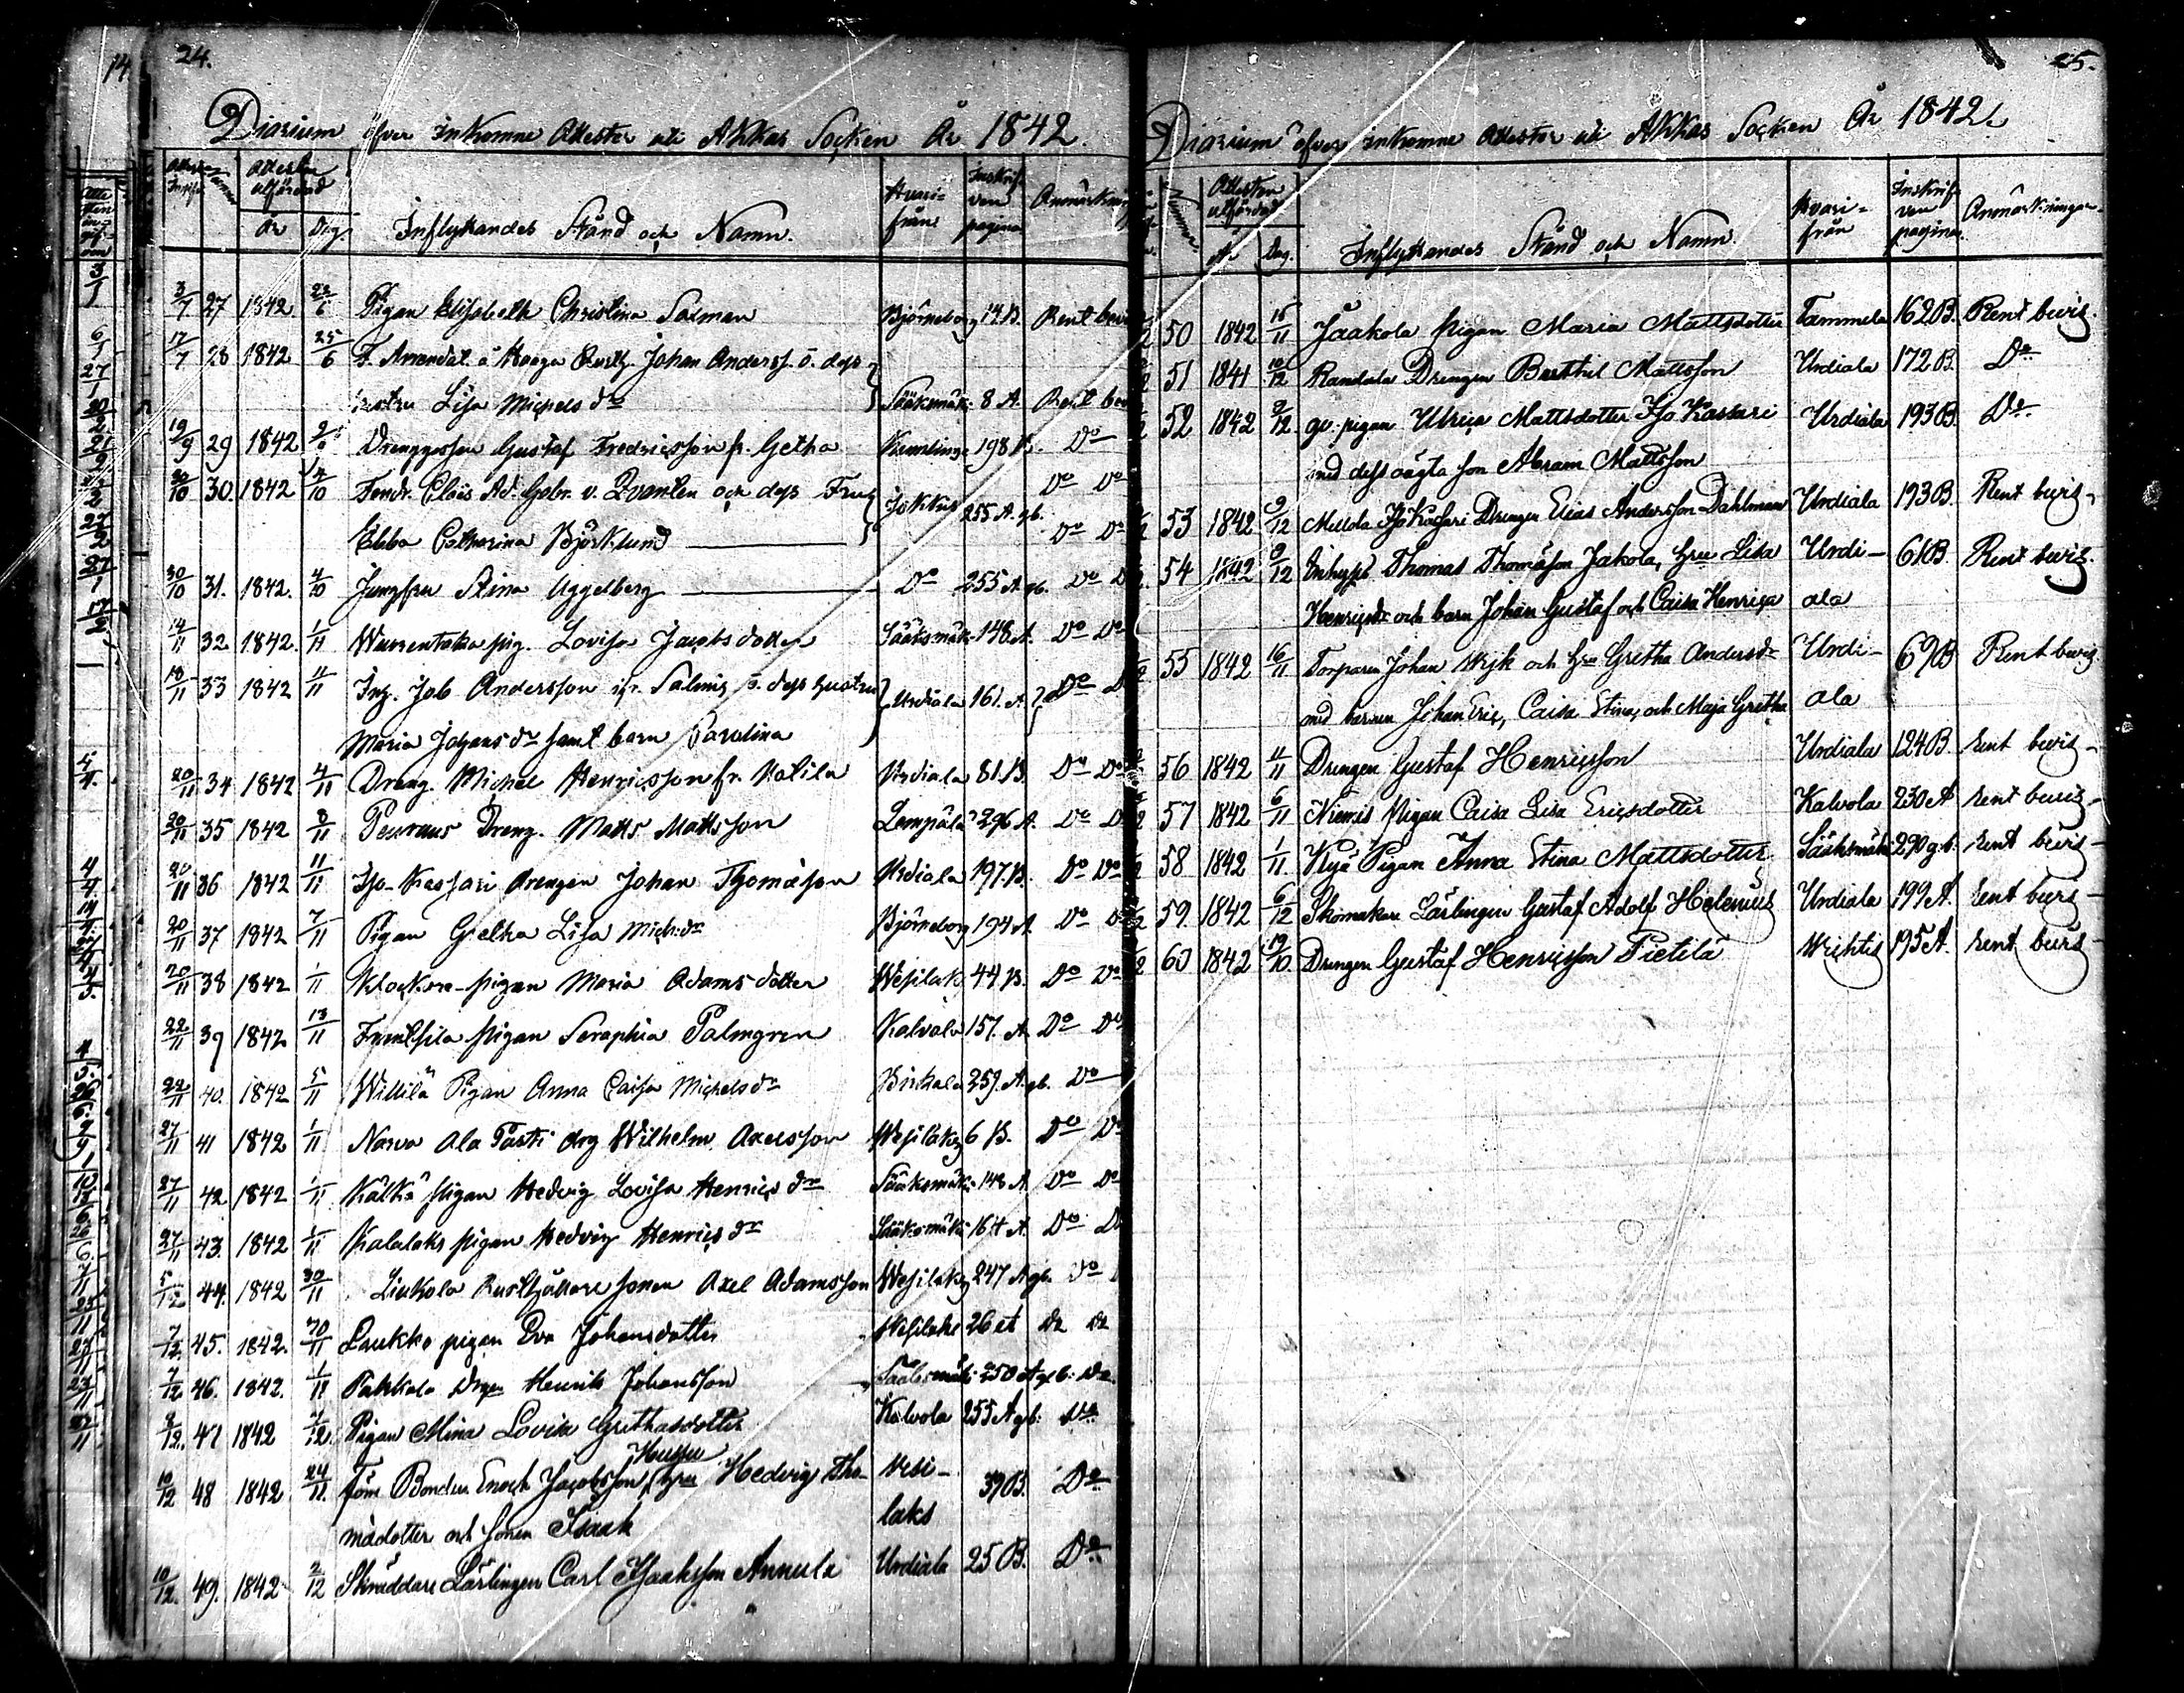 24.
Diarium öfver Inkomne Attester uti Akkas Socken År 1842.
Attesten utfärdad
År Dag. Inflyttandes Stånd och Namn. Hvari-från Inskrifven pagina Anmärkning
3/7 27 1842 22/6 Pigan Elisabeth Christina Salman Björneborg 14 B. Rent bevis
17/7 28 1842 25/6 F. Arrendat. å Haaga Rusth. Johan Anderss. o. dess
hustru Lisa Michelsdr Sääksmäki 8 A. Rent bevis
19/9 29 1842 2/9 Drenggossen Gustaf Fredricsson fr. Getha Kumlinge 198 B. Do
30/10 30. 1842 4/10 Fendr. Claës Ad. Gabr. v. Qvanten och dess Fru Jokkis 255 A. gb. Do Do
Ebba Catharina Björklund Do Do
30/10 31. 1842. 4/10 Jungfru Stina Uggelberg Do 255 A gb. Do Do
14/11 32 1842. 1/11 pig. Lovisa Jacobsdotter Sääksmäki 148 A. Do Do
18/11 33 1842 4/11 Inh. Job Andersson ifr. Salmis o. dess hustru Urdiala 161. A Do Do
Maria Johansdr samt barn Carolina
20/11 34 1842 4/11 Dreng. Michel Henricsson fr. Kotila Urdiala 81 B. Do Do
20/11 35 1842 8/11 Peuraus Dreng. Matts Mattsson Lempälä 296 A. Do Do
20/11 36 1842 11/11 Iso-Kassari drengen Johan Thomasson Urdiala 197 B. Do Do
20/11 37 1842 7/11 Pigan Gretha Lisa Michelsdr Björneborg 194 A Do Do
20/11 38 1842 1/11 Klockare-pigan Maria Adamsdotter Wesilaks 44 B. Do Do
22/11 39 1842 13/11 pigan Seraphia Palmgren Kalvola 157. A Do Do
22/11 40. 1842 5/11 Willilä Pigan Anna Caisa Michelsdr Birkala 259. A. gb. Do
27/11 41 1842 1/11 Narva Ala Pasti drg Wilhelm Axelsson Wesilaks 6 B. Do Do
27/11 42 1842 1/11 Kälkä pigan Hedvig Lovisa Henricsdr Sääksmäki 148 A Do Do
27/11 43 1842 1/11 Kalalaks pigan Hedvig Henricsdr Sääksmäki 164 A. Do Do
5/12 44. 1842 30/11 Liukola Rusthållare sonen Axel Adamsson Wesilaks 247 A gb. Do
7/12 45. 1842. 20/11 Laukko pigan Eva Johansdotter Wesilaks 26 A Do Do
7/12 46. 1842. 1/11 Pakkala Drgn Henrik Johansson Sääksmäki 250 A gb. Do
9/12. 47 1842 4/12. Pigan Mina Lovisa Grethasdotter Kalvola 255 A gb. Do
10/12 48 1842 24/11. Före Bonden Enoch Jacobsson Hustru Hedvig Tho- Vesi- 39 B. Do
masdotter och sonen Isaak laks
10/12. 49. 1842 2/12 Skräddare Lärlingen Carl Isaksson Annula Urdiala 25 B. Do
25.
Diarium öfver inkomne Attester uti Akkas Socken År 1842.
Nummer Attesten utfärdad
År Dag. Inflyttandes Stånd och Namn. Hvari-från Inskrifven pagina. Anmärkningar.
50 1842 15/11 Jaakola pigan Maria Mattsdotter Tammela 162 B. Rent bevis.
51 1841 10/12 Randala Drengen Barthil Mattsson Urdiala 172 B. Do
52 1842 9/12. gv. pigan Ulrica Mattsdotter Iso Kassari Urdiala 193 B. Do
med dess oägta son Abram Mattsson
53 1842 9/12 Mellola Iso Kassari Drengen Elias Andersson Dahlman Urdiala 193 B. Rent bevis
54 1842 9/12 Inhyss Thomas Thomasson Jakola, Hru Lisa Urdi- 61 B. Rent bevis.
Henricsdr och barn Johan Gustaf och Caisa Henrica ala
55 1842 16/11 Torparen Johan Wijk och hru Gretha Andersdr Urdi- 69 B Rent bevis
med barnen Johan Eric, Caisa Stina, och Maja Gretha ala
56 1842 4/11 Drengen Gustaf Henricsson Urdiala 124 B. rent bevis
57 1842 6/11 Niemis Pigan Caisa Lisa Ericsdotter Kalvola 230 A rent bevis
58 1842 1/11. Pigan Anna Stina Mattsdotter Sääksmäki 290 gb. rent bevis
59. 1842 6/12 Skomakare Lärlingen Gustaf Adolf Helenius Urdiala 199 A. rent bevis
60 1842 19/10. Drengen Gustaf Henricsson Pietilä Wichtis 195 A. rent bevis